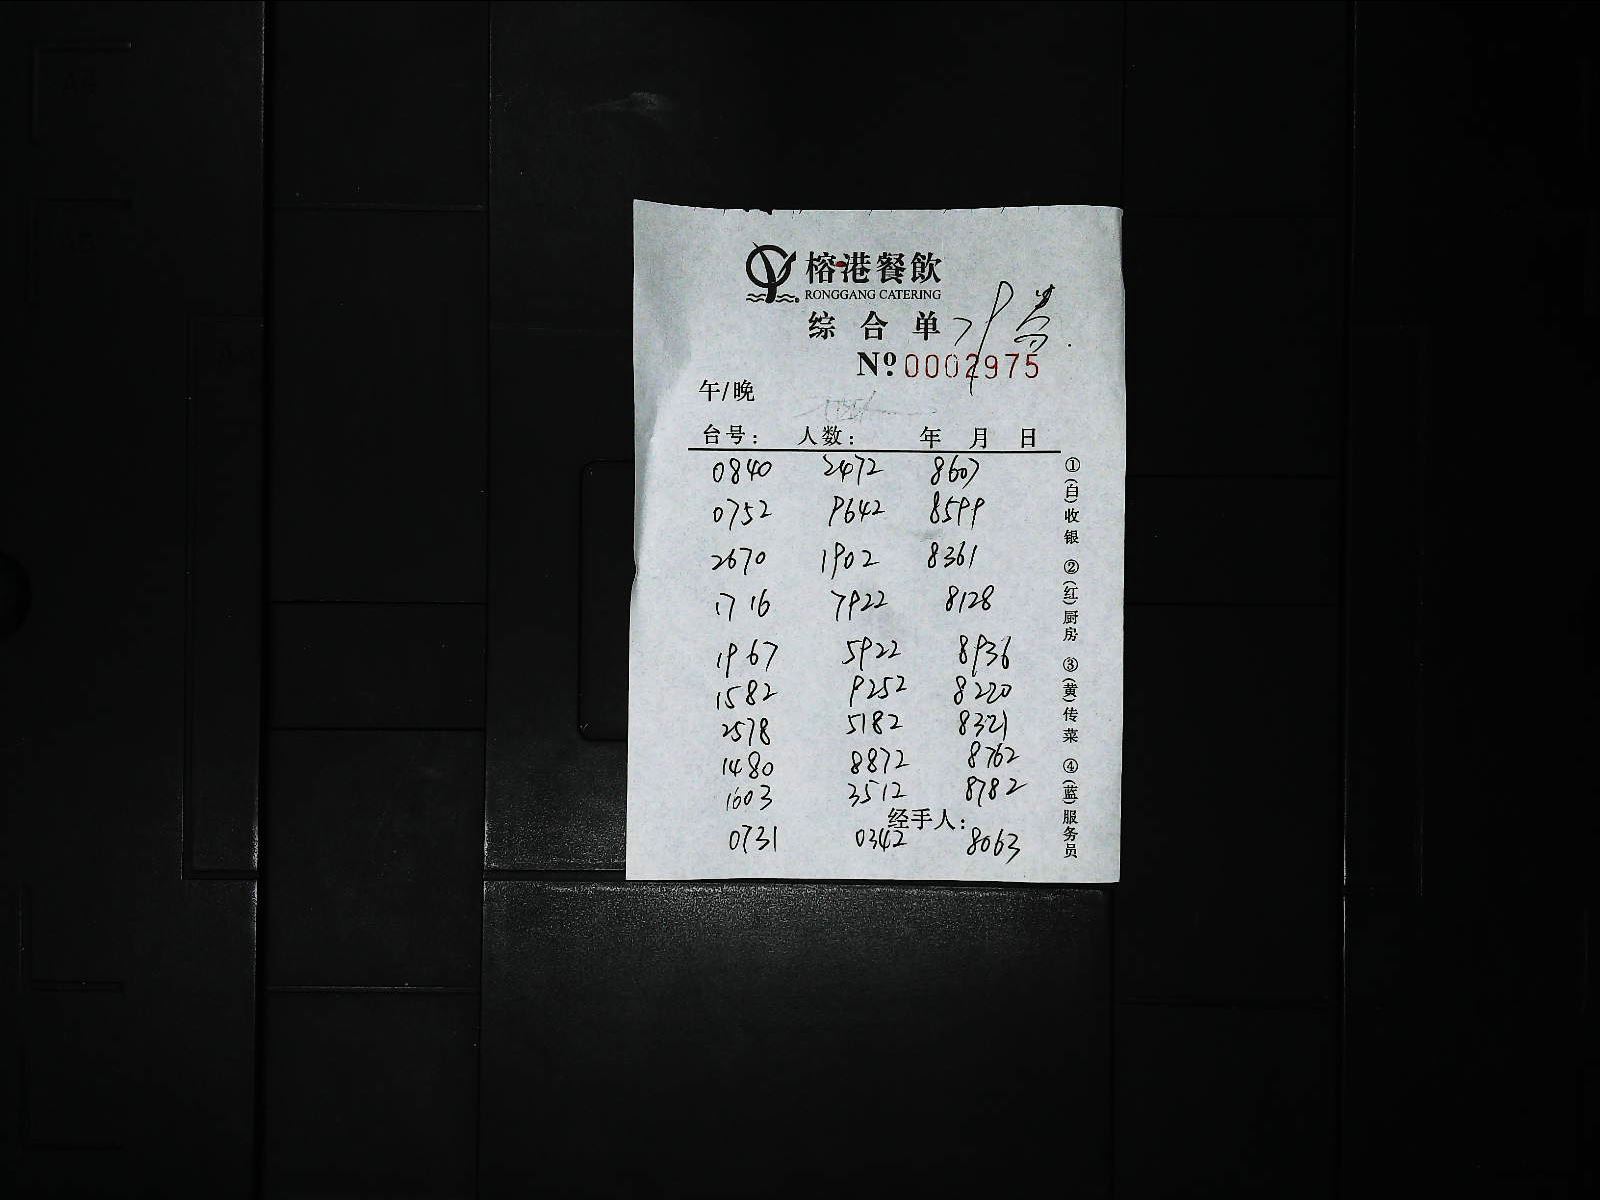 榕港餐飲
RONGGANG CATERING
综合单
Nº 0002975
午/晚
台号： 人数： 年 月 日
0840 2472 8607
0752 9642 8599
2670 1902 8361
1716 7922 8128
1967 5922 8936
1582 9252 8220
2578 5182 8321
1480 8872 8762
1603 3512 8782
经手人：
0731 0342 8063
①(白)收银 ②(红)厨房 ③(黄)传菜 ④(蓝)服务员